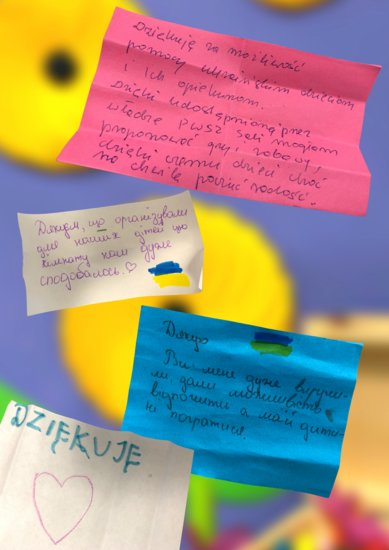 Dziękuję za możliwość
pomocy ukraińskim dzieciom
i ich opiekunom.
Dzięki udostępnioną przez
władze PWSZ sali mogłam
proponować gry, zabawy,
dzięki czemu dzieci choć
na chwilę poczuć radość.
Дякуєм, що організували
для наших дітей цю
кімнату нам дуже
сподобалось.♡
Дякую
Ви мене дуже виручи-
ли дали можливість
відпочити а моїй дити-
ні погратися.
DZIĘKUJĘ